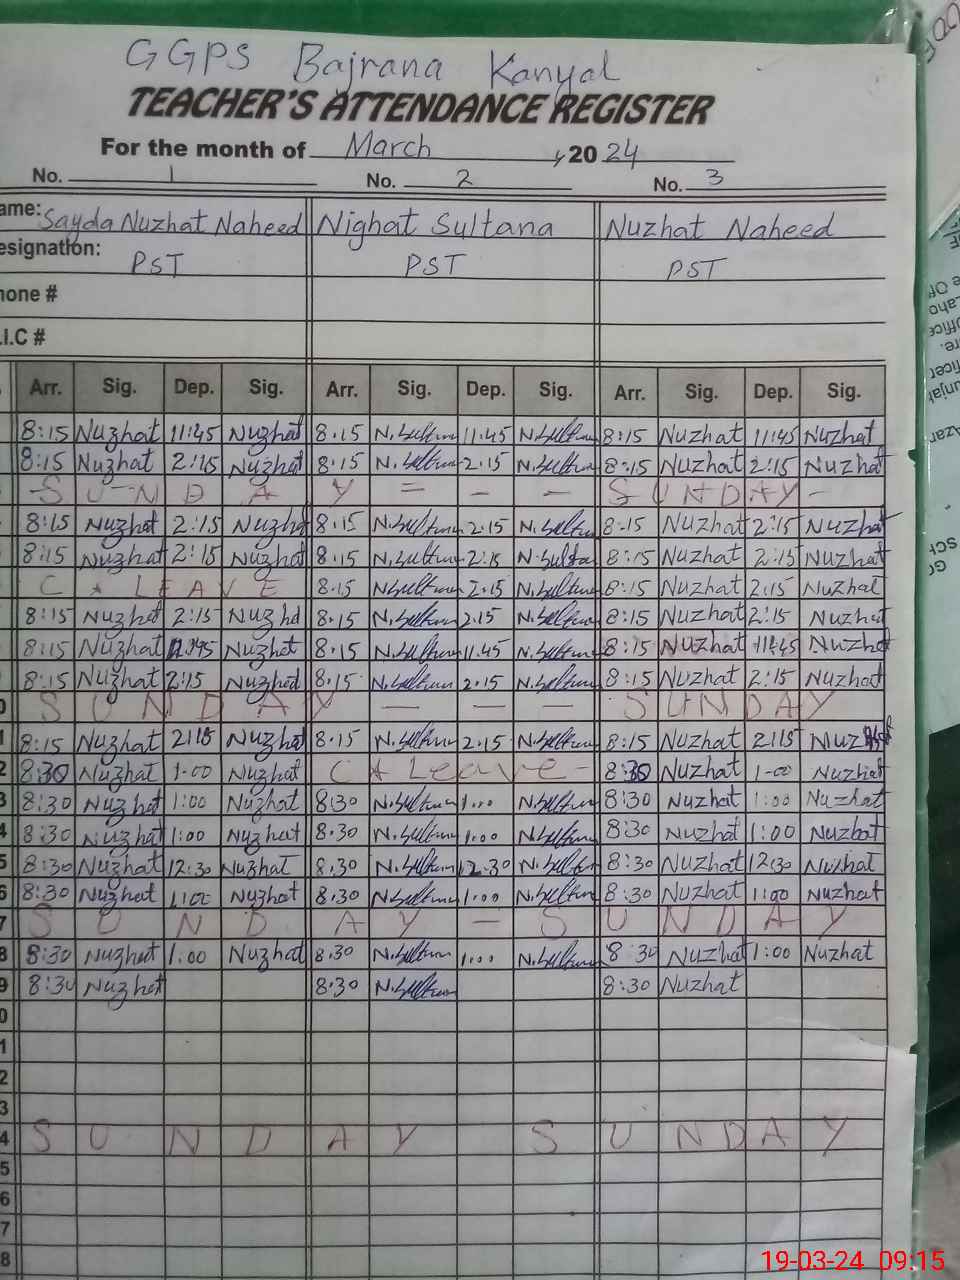 GGPS Bajrana Kanyal
TEACHER'S ATTENDANCE REGISTER
For the month of March, 2024
No. 1 No. 2 No. 3
ame: Sayda Nuzhat Naheed Nighat Sultana Nuzhat Naheed
esignation: PST PST PST
hone #
.I.C #
Arr. Sig. Dep. Sig. Arr. Sig. Dep. Sig. Arr. Sig. Dep. Sig.
8:15 Nuzhat 11:45 Nuzhat 8.15 N.Sultana 11.45 N.Sultana 8:15 Nuzhat 11:45 Nuzhat
8:15 Nuzhat 2:15 Nuzhat 8.15 N.Sultana 2.15 N.Sultana 8:15 Nuzhat 2:15 Nuzhat
- S U N D A Y = - - S U N D A Y -
8:15 Nuzhat 2:15 Nuzhat 8.15 N.Sultana 2.15 N.Sultana 8:15 Nuzhat 2:15 Nuzhat
8:15 Nuzhat 2:15 Nuzhat 8.15 N.Sultana 2:15 N.Sultana 8:15 Nuzhat 2:15 Nuzhat
C * LEAVE 8.15 N.Sultana 2.15 N.Sultana 8:15 Nuzhat 2:15 Nuzhat
8:15 Nuzhat 2:15 Nuzhat 8.15 N.Sultana 2.15 N.Sultana 8:15 Nuzhat 2:15 Nuzhat
8:15 Nuzhat Nuzhat 8.15 N.Sultana 11.45 N.Sultana 8:15 Nuzhat 11:45 Nuzhat
8:15 Nuzhat 2:15 Nuzhat 8.15 N.Sultana 2.15 N.Sultana 8:15 Nuzhat 2:15 Nuzhat
0 S U N D A Y - - - S U N D A Y
1 8:15 Nuzhat 2:15 Nuzhat 8.15 N.Sultana 2.15 N.Sultana 8:15 Nuzhat 2:15
2 8:30 Nuzhat 1-00 Nuzhat C * Leave - 8:30 Nuzhat 1-00 Nuzhat
3 8:30 Nuzhat 1:00 Nuzhat 8.30 N.Sultana 1.00 N.Sultana 8:30 Nuzhat 1:00 Nuzhat
4 8:30 Nuzhat 1:00 Nuzhat 8.30 N.Sultana 1.00 N.Sultana 8:30 Nuzhat 1:00 Nuzhat
5 8:30 Nuzhat 12:30 Nuzhat 8.30 N.Sultana 12.30 N.Sultana 8:30 Nuzhat 12:30 Nuzhat
6 8:30 Nuzhat 1:00 Nuzhat 8.30 N.Sultana 1.00 N.Sultana 8:30 Nuzhat 1:00 Nuzhat
7 S U N D A Y - S U N D A Y
8 8:30 Nuzhat 1:00 Nuzhat 8.30 N.Sultana 1.00 N.Sultana 8:30 Nuzhat 1:00 Nuzhat
9 8:30 Nuzhat 8.30 N.Sultana 8:30 Nuzhat
0
1
2
3
4 S U N D A Y S U N D A Y
5
6
7
8
19-03-24 09:15